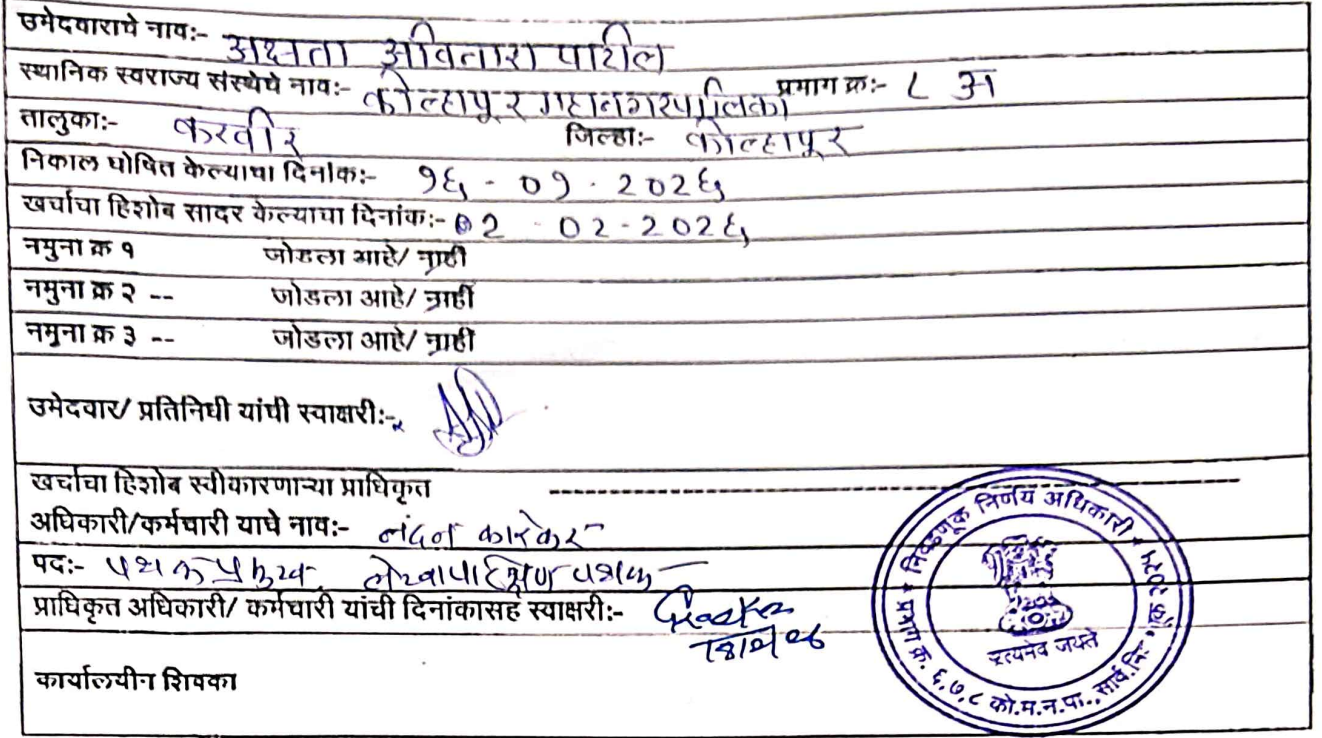 उमेदवाराचे नाव:- अक्षता अवितारा पाटील
स्थानिक स्वराज्य संस्थेचे नाव:- कोल्हापूर महानगरपालिका प्रभाग क्र:- ८ अ
तालुका:- करवीर जिल्हा:- कोल्हापूर
निकाल घोषित केल्याचा दिनांक:- १६ - ०१ - २०२६
खर्चाचा हिशोब सादर केल्याचा दिनांक:- ०२ - ०२ - २०२६
नमुना क्र १ जोडला आहे/ नाही
नमुना क्र २ -- जोडला आहे/ नाही
नमुना क्र ३ -- जोडला आहे/ नाही
उमेदवार/ प्रतिनिधी यांची स्वाक्षरी:-
खर्चाचा हिशोब स्वीकारणाऱ्या प्राधिकृत
अधिकारी/कर्मचारी याचे नाव:- नंदन कारेकर
पद:- पथक प्रमुख, लेखापरिक्षण पथक
प्राधिकृत अधिकारी/ कर्मचारी यांची दिनांकासह स्वाक्षरी:-
कार्यालयीन शिक्का
निवडणूक निर्णय अधिकारी
प्रभाग क्र. ६,७,८ को.म.न.पा., सार्व.नि. २०२५
सत्यमेव जयते